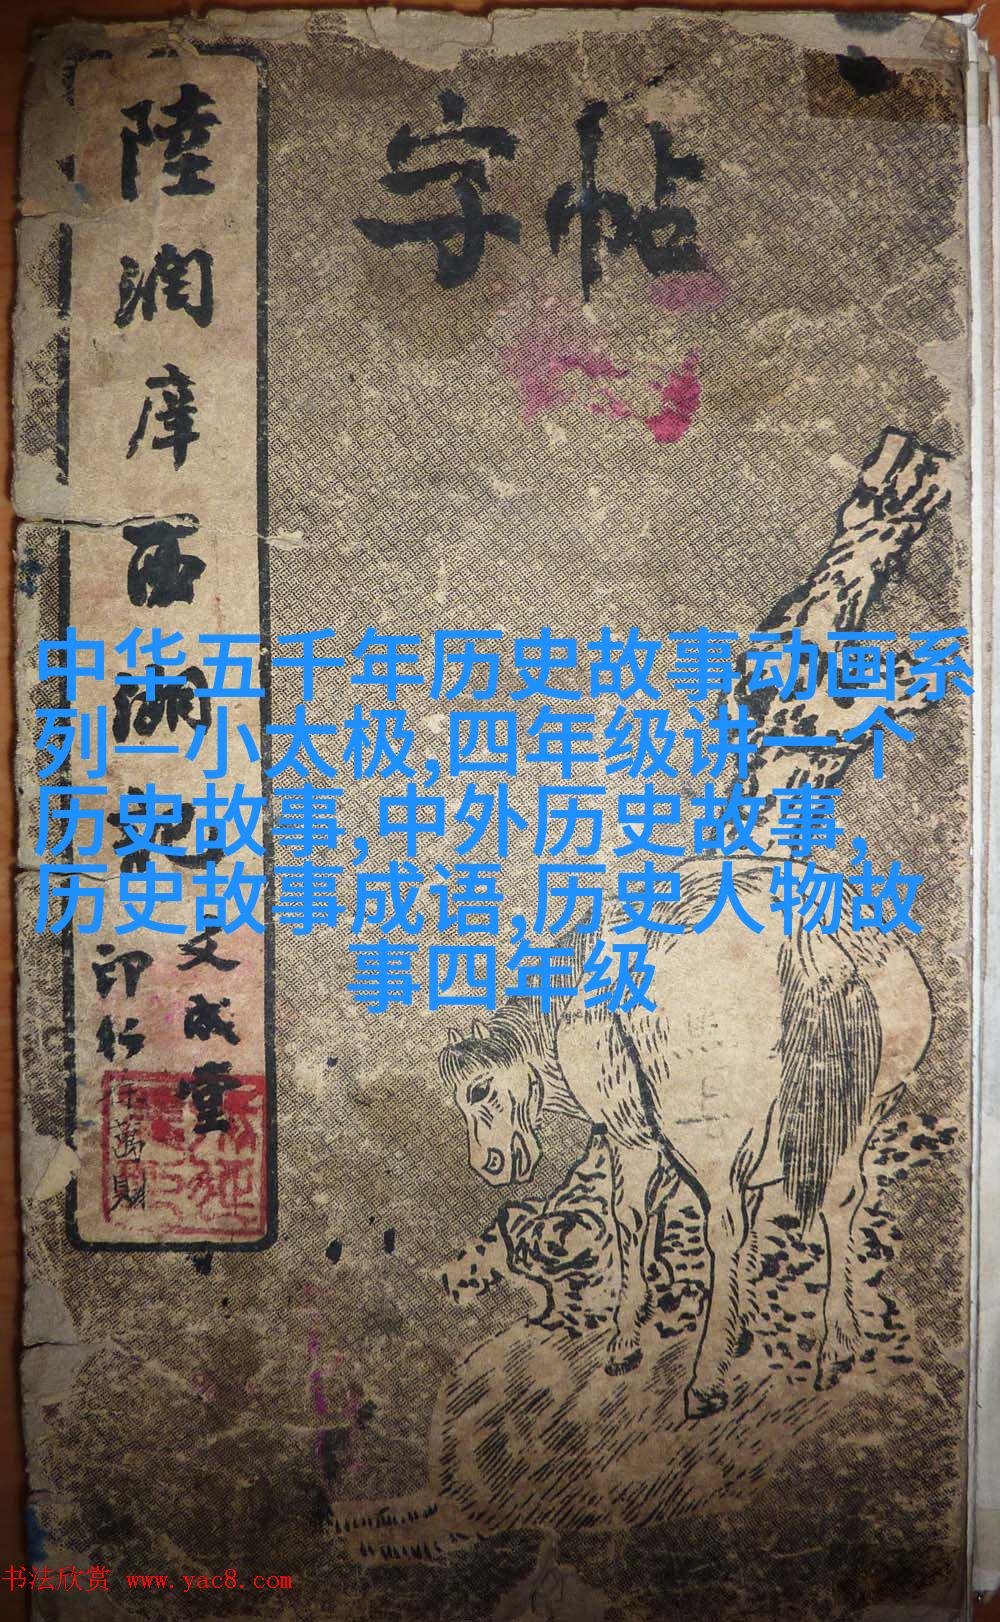 字帖
陸潤庠西湖記
文成堂
印行
徐萬財
中华五千年历史故事动画系
列—小太极,四年级讲一个
历史故事,中外历史故事,
历史故事成语,历史人物故
事四年级
书法欣赏 www.yac8.com